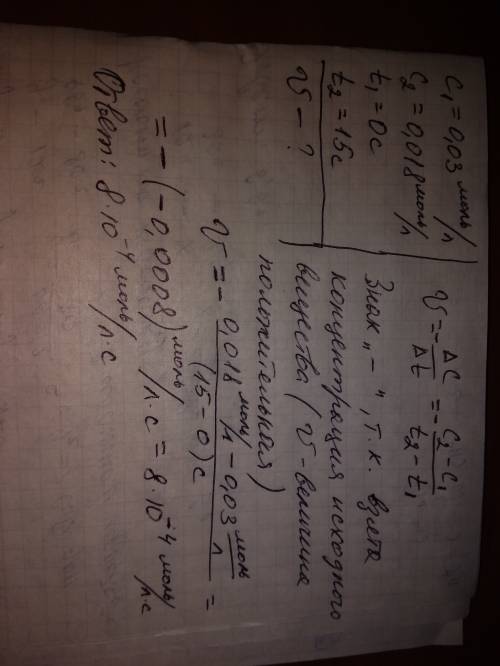 C₁ = 0,03 моль/л
C₂ = 0,018 моль/л
t₁ = 0c
t₂ = 15c
V - ?
V = - ΔC/Δt = - (C₂ - C₁)/(t₂ - t₁)
Знак „-“, т.к. взята
концентрация исходного
вещества (V - величина
положительная)
V = - (0,018 моль/л - 0,03 моль/л)/((15 - 0)c) =
= - (-0,0008) моль/л·с = 8·10⁻⁴ моль/л·с
Ответ: 8·10⁻⁴ моль/л·с